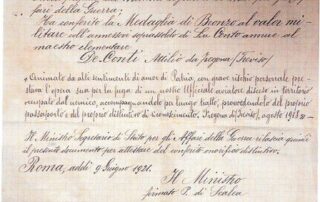 fari della Guerra;
Ha conferito la Medaglia di Bronzo al valor mi-
litare coll'annesso soprassoldo di Lire Cento annue al
maestro elementare
De Conti Attilio da Fregona (Treviso)
« Animato da alti sentimenti di amor di Patria, con grave rischio personale pre-
stava l'opera sua per la fuga di un nostro Ufficiale aviatore disceso in territorio
occupato dal nemico, accompagnandolo per lungo tratto, provvedendolo del proprio
passaporto e del proprio distintivo di riconoscimento. Fregona (Treviso), agosto 1918 »
Il Ministro Segretario di Stato per gli Affari della Guerra rilascia quindi
il presente documento per attestare del conferito onorifico distintivo.
Roma, addì 9 Giugno 1921.
Il Ministro
firmato P. di Scalea